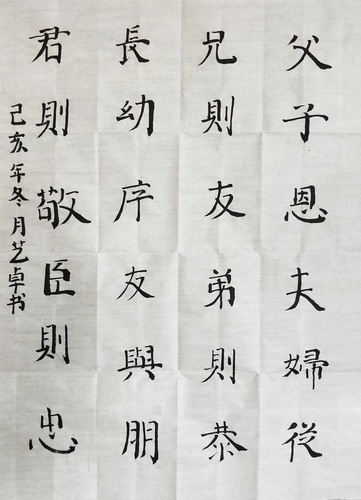 父子恩夫婦從
兄則友弟則恭
長幼序友與朋
君則敬臣則忠
己亥年冬月艺卓书